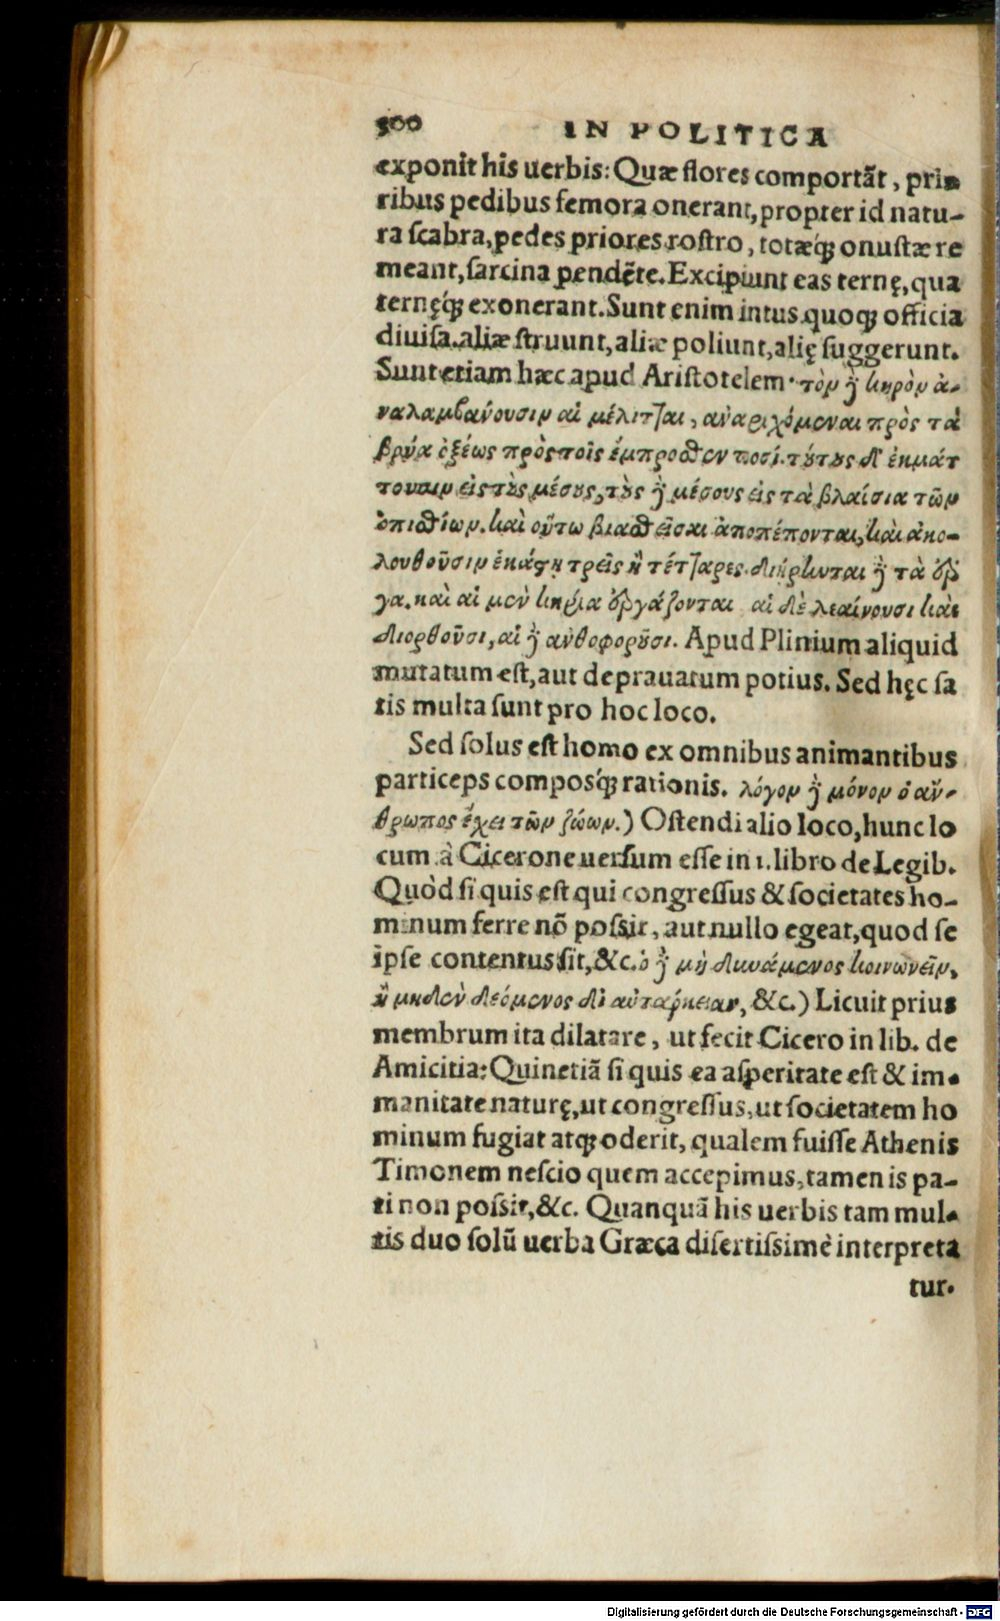 500 IN POLITICA
exponit his uerbis: Quæ flores comportãt, prio
ribus pedibus femora onerant, propter id natu-
ra ſcabra, pedes priores roſtro, totæq́ꝫ onuſtæ re
meant, ſarcina pendẽte. Excipiunt eas ternę, qua
ternęq́ꝫ exonerant. Sunt enim intus quoqꝫ officia
diuiſa. aliæ ſtruunt, aliæ poliunt, alię ſuggerunt.
Sunt etiam hæc apud Ariſtotelem· τὸν ἢ κηρὸν ἀ-
ναλαμβανουσιν αἱ μέλιτζαι, ἀναριχόμεναι πρὸς τὰ
βρύα ὀξέως πρὸς τοῖς ἔμπροσθεν ποσί. τούτους δ' ἐκμάτ
τουσιν εἰς τοὺς μέσους, τοὺς ἢ μέσους εἰς τὰ βλαίσια τῶν
ὀπισθίων. καὶ οὕτω βιασθεῖσαι ἀποπέπονται, καὶ ἀκο-
λουθοῦσιν ἑκάστῃ τρεῖς ἢ τέτζαρες. διῄρηνται ἢ τὰ ἔρ
γα. καὶ αἱ μὲν κηρία ἐργάζονται αἱ δὲ λεαίνουσι καὶ
διορθοῦσι, αἱ ἢ ἀνθοφοροῦσι. Apud Plinium aliquid
mutatum eſt, aut deprauatum potius. Sed hęc ſa
tis multa ſunt pro hoc loco.
Sed ſolus eſt homo ex omnibus animantibus
particeps composq́ꝫ rationis. λόγον ἢ μόνον ὁ ἄν-
θρωπος ἔχει τῶν ζώων.) Oſtendi alio loco, hunc lo
cum à Cicerone uerſum eſſe in 1. libro de Legib.
Quòd ſi quis eſt qui congreſſus & ſocietates ho-
minum ferre nõ poſsit, aut nullo egeat, quod ſe
ipſe contentus ſit, &c. ὁ ἢ μὴ δυνάμενος κοινωνεῖν,
ἢ μηδὲν δεόμενος δι αὐτάρκειαν, &c.) Licuit prius
membrum ita dilatare, ut fecit Cicero in lib. de
Amicitia: Quinetiã ſi quis ea aſperitate eſt & im-
manitate naturę, ut congreſſus, ut ſocietatem ho
minum fugiat atqꝫ oderit, qualem fuiſſe Athenis
Timonem neſcio quem accepimus, tamen is pa-
ti non poſsit, &c. Quanquã his uerbis tam mul-
tis duo ſolũ uerba Græca diſertiſsimè interpreta
tur.
Digitalisierung gefördert durch die Deutsche Forschungsgemeinschaft - DFG